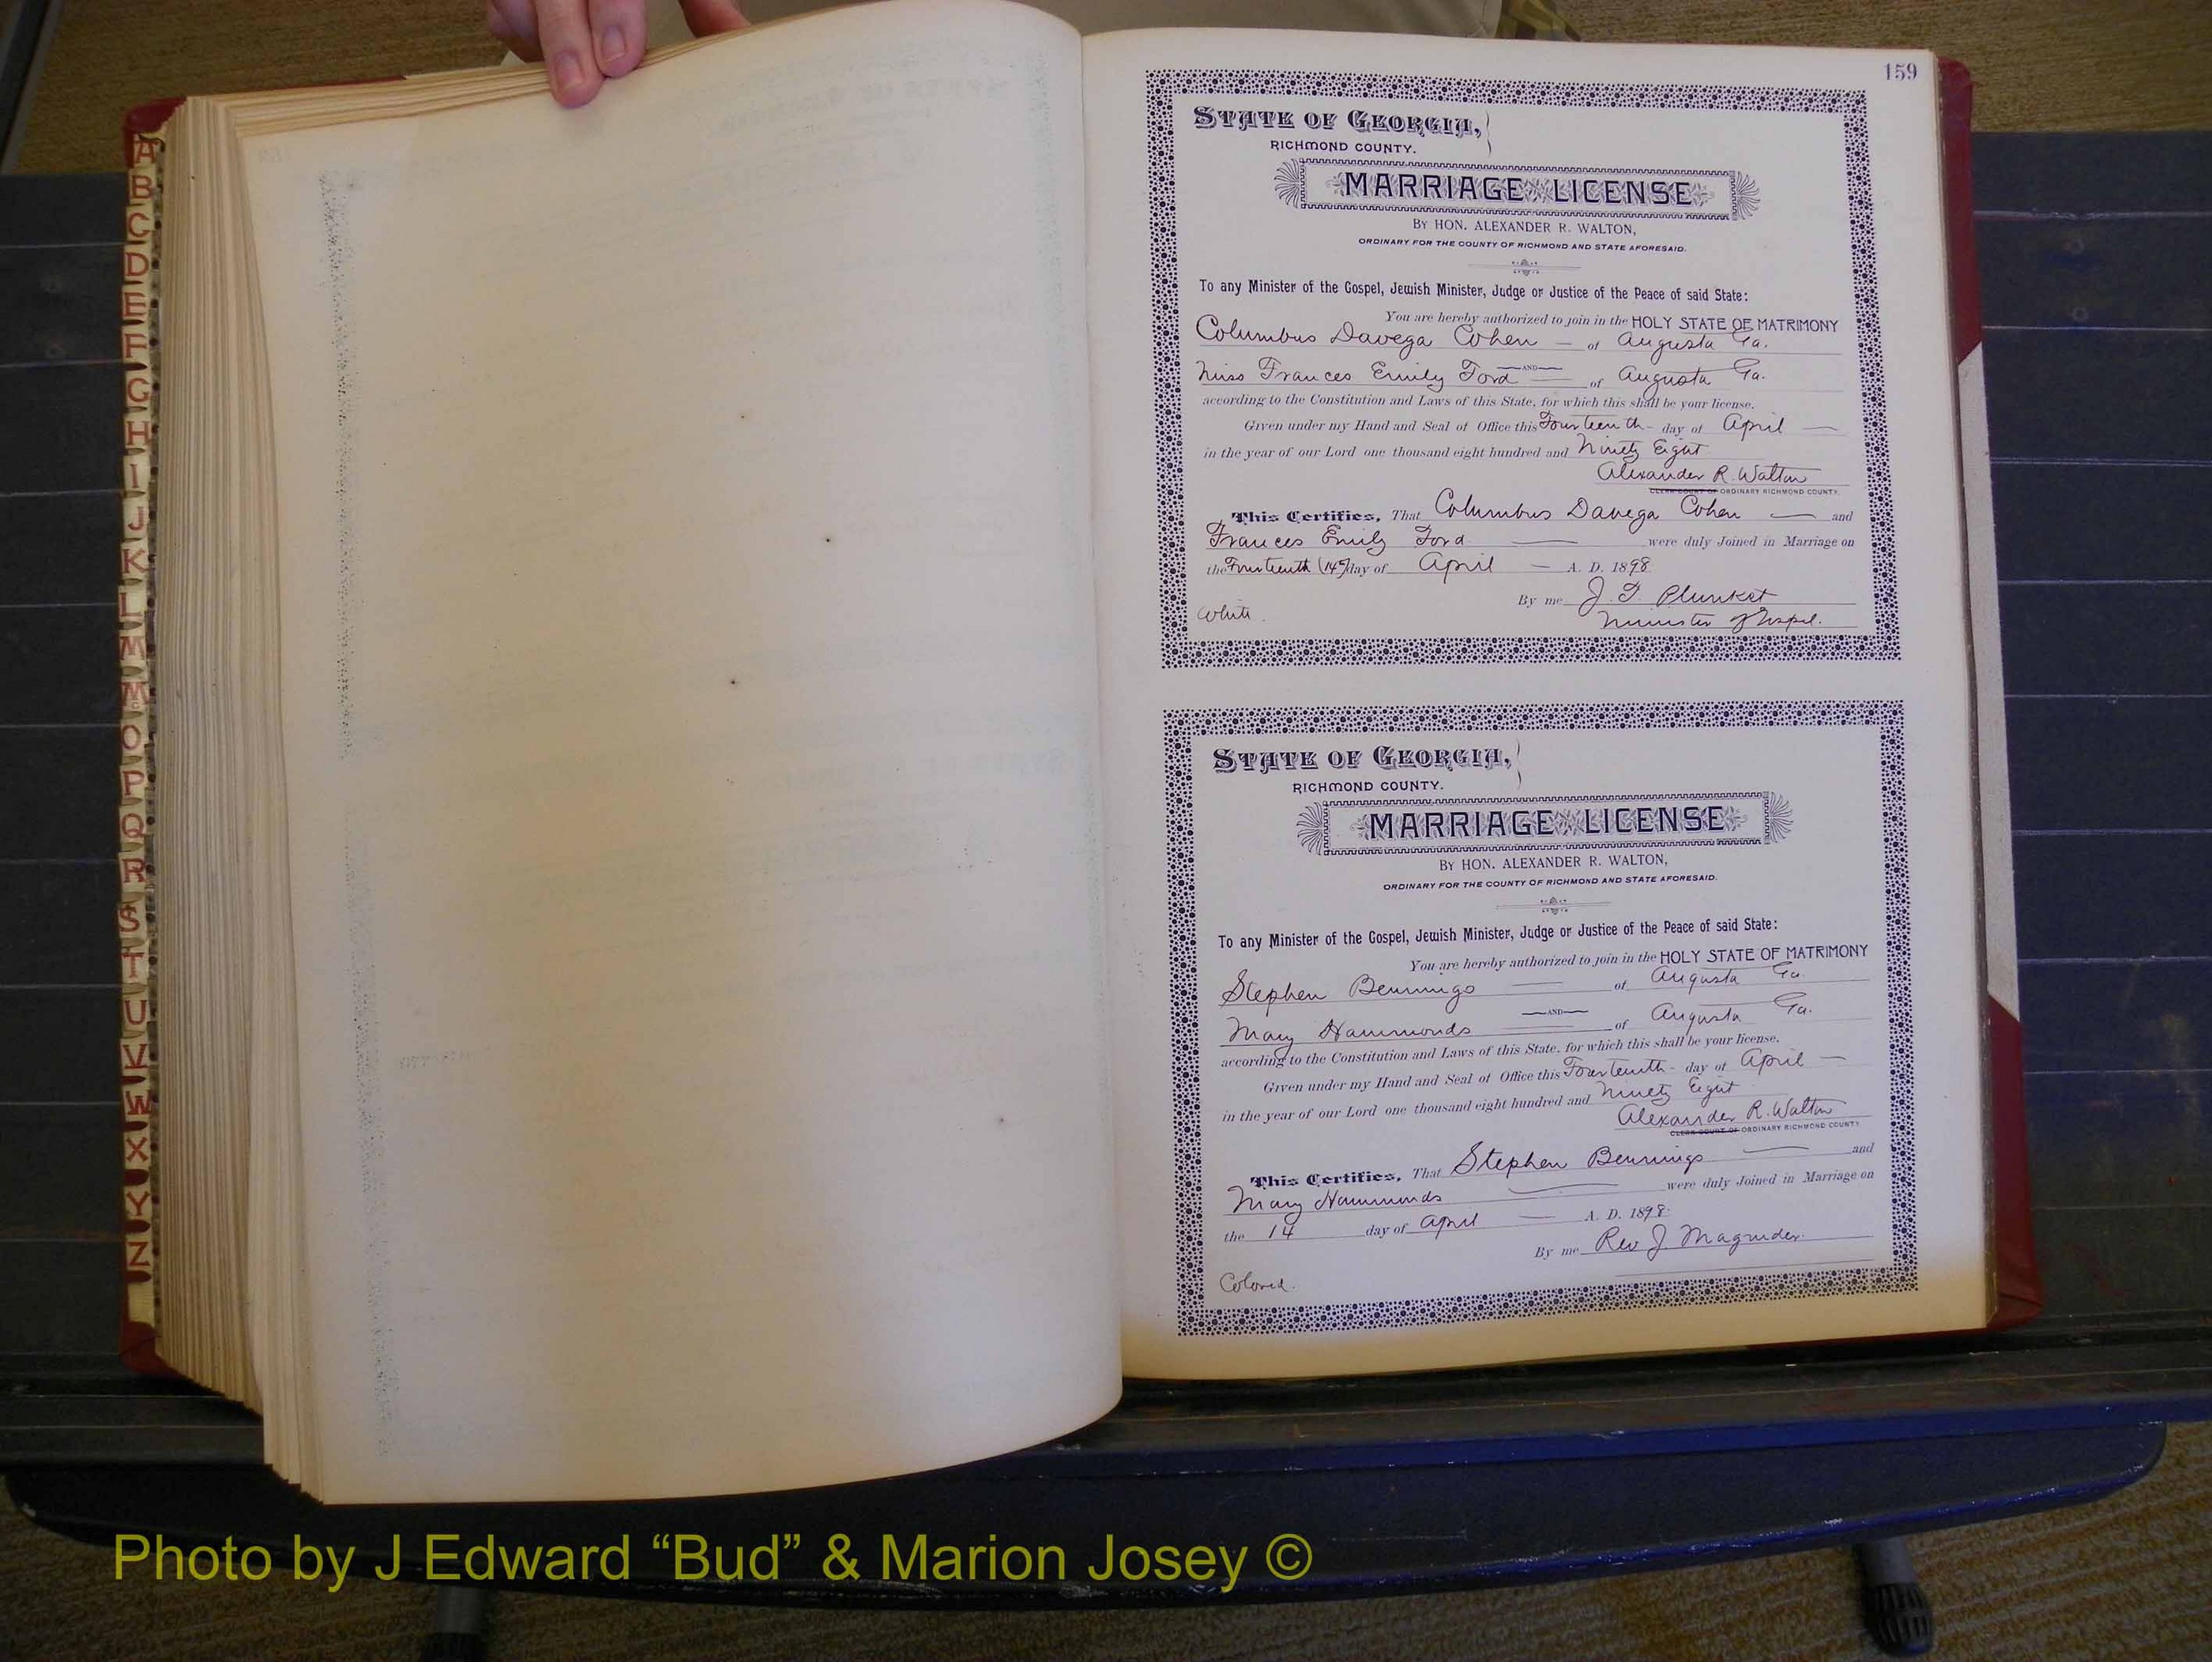 A
B
C
D
E
F
G
H
I
J
K
L
M
Mc
O
P
Q
R
S
T
U
V
W
X
Y
Z
159
STATE OF GEORGIA,
RICHMOND COUNTY.
MARRIAGE LICENSE
BY HON. ALEXANDER R. WALTON,
ORDINARY FOR THE COUNTY OF RICHMOND AND STATE AFORESAID.
To any Minister of the Gospel, Jewish Minister, Judge or Justice of the Peace of said State:
You are hereby authorized to join in the HOLY STATE OF MATRIMONY
Columbus Davega Cohen — of Augusta Ga.
AND
Miss Frances Emily Ford — of Augusta Ga.
according to the Constitution and Laws of this State, for which this shall be your license.
Given under my Hand and Seal of Office this Fourteenth - day of April —
in the year of our Lord one thousand eight hundred and Ninety Eight
Alexander R. Walton
CLERK COURT OF ORDINARY RICHMOND COUNTY.
This Certifies, That Columbus Davega Cohen — and
Frances Emily Ford — were duly Joined in Marriage on
the Fourteenth (14") day of April — A. D. 1898
By me J. T. Plunket
White. Minister of Gospel.
STATE OF GEORGIA,
RICHMOND COUNTY.
MARRIAGE LICENSE
BY HON. ALEXANDER R. WALTON,
ORDINARY FOR THE COUNTY OF RICHMOND AND STATE AFORESAID.
To any Minister of the Gospel, Jewish Minister, Judge or Justice of the Peace of said State:
You are hereby authorized to join in the HOLY STATE OF MATRIMONY
Stephen Bennings — of Augusta Ga.
AND
Mary Hammonds — of Augusta Ga.
according to the Constitution and Laws of this State, for which this shall be your license.
Given under my Hand and Seal of Office this Fourteenth - day of April —
in the year of our Lord one thousand eight hundred and Ninety Eight
Alexander R. Walton
CLERK COURT OF ORDINARY RICHMOND COUNTY
This Certifies, That Stephen Bennings — and
Mary Hammonds — were duly Joined in Marriage on
the 14 day of April — A. D. 1898
By me Rev J. Magruder
Colored.
Photo by J Edward “Bud” & Marion Josey ©